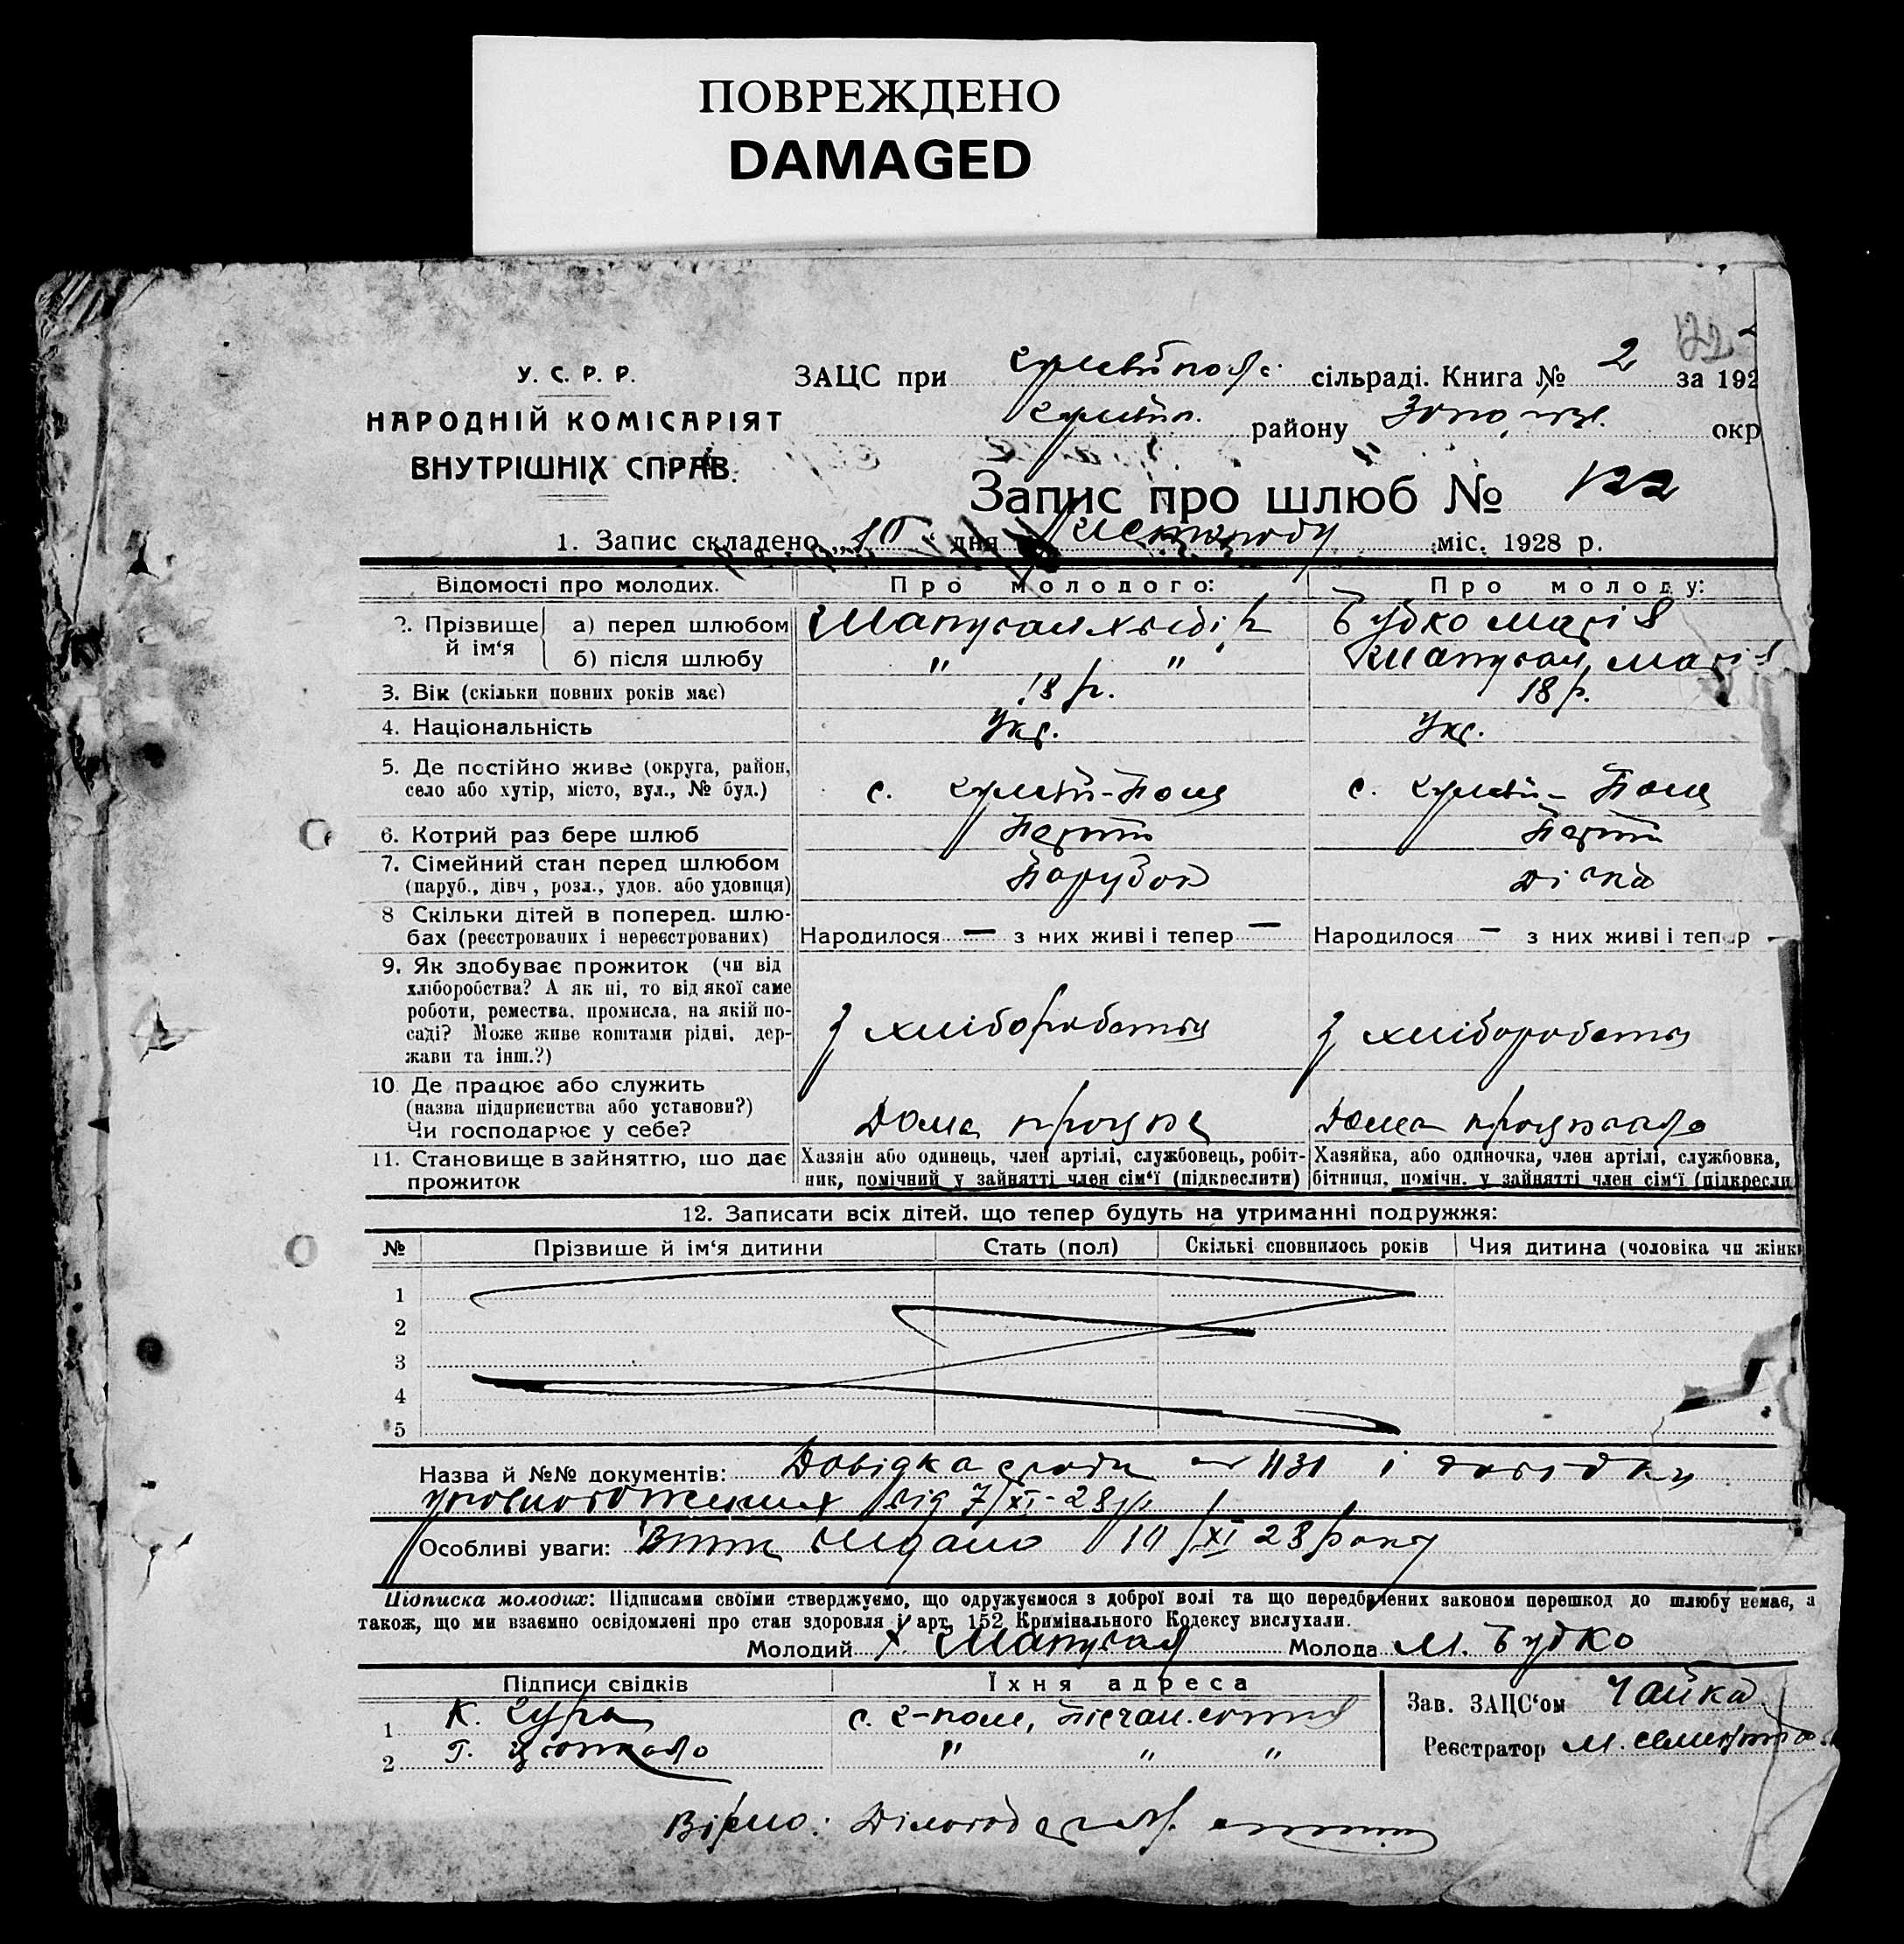 ПОВРЕЖДЕНО
DAMAGED
122
У. С. Р. Р.
НАРОДНІЙ КОМІСАРІЯТ
ВНУТРІШНІХ СПРАВ.
ЗАЦС при сільраді. Книга № 2 за 192
району окр
Запис про шлюб № 122
1. Запис складено „10“ дня Листопаду міс. 1928 р.
Відомості про молодих. Про молодого: Про молоду:
2. Прізвище й ім‘я а) перед шлюбом Шапувал Будко Марія
б) після шлюбу " " Шапувал Марія
3. Вік (скільки повних років має) 18 р. 18 р.
4. Національність Укр. Укр.
5. Де постійно живе (округа, район,
село або хутір, місто, вул., № буд.) с. Гуляй-Поле с. Гуляй-Поле
6. Котрий раз бере шлюб Перший Перший
7. Сімейний стан перед шлюбом
(паруб., дівч., розл., удов. або удовиця) Парубок Дівка
8 Скільки дітей в поперед. шлю-
бах (реєстрованих і нереєстрованих) Народилося — з них живі і тепер — Народилося — з них живі і тепер —
9. Як здобуває прожиток (чи від
хліборобства? А як ні, то від якої саме
роботи, ремества, промисла, на якій по-
саді? Може живе коштами рідні, дер-
жави та інш.?) З хліборобства З хліборобства
10. Де працює або служить
(назва підприємства або установи?)
Чи господарює у себе? Дома працює Дома працювала
11. Становище в зайняттю, що дає
прожиток
Хазяїн або одинець, член артілі, службовець, робіт-
ник, помічний у зайнятті член сім‘ї (підкреслити)
Хазяйка, або одиночка, член артілі, службовка,
бітниця, помічн. у зайнятті член сім‘ї (підкресли
12. Записати всіх дітей, що тепер будуть на утриманні подружжя:
№ Прізвище й ім‘я дитини Стать (пол) Скількі сповнилось років Чия дитина (чоловіка чи жінки
1
2
3
4
5
Назва й №№ документів: Довідка 1131 і довідки
від 7/XI-28 р.
Особливі уваги: Витяг видано 10/XI 28 року
Підписка молодих: Підписами своїми стверджуємо, що одружуємося з доброї волі та що передбачених законом перешкод до шлюбу немає, а
також, що ми взаємно освідомлені про стан здоровля і арт. 152 Кримінального Кодексу вислухали.
Молодий Х. Шапувал Молода М. Будко
Підписи свідків Їхня адреса
1 К. Гура с. Г-поле,
2 Г. " " "
Зав. ЗАЦС‘ом Чайка
Реєстратор М.
Вірно: Діловод